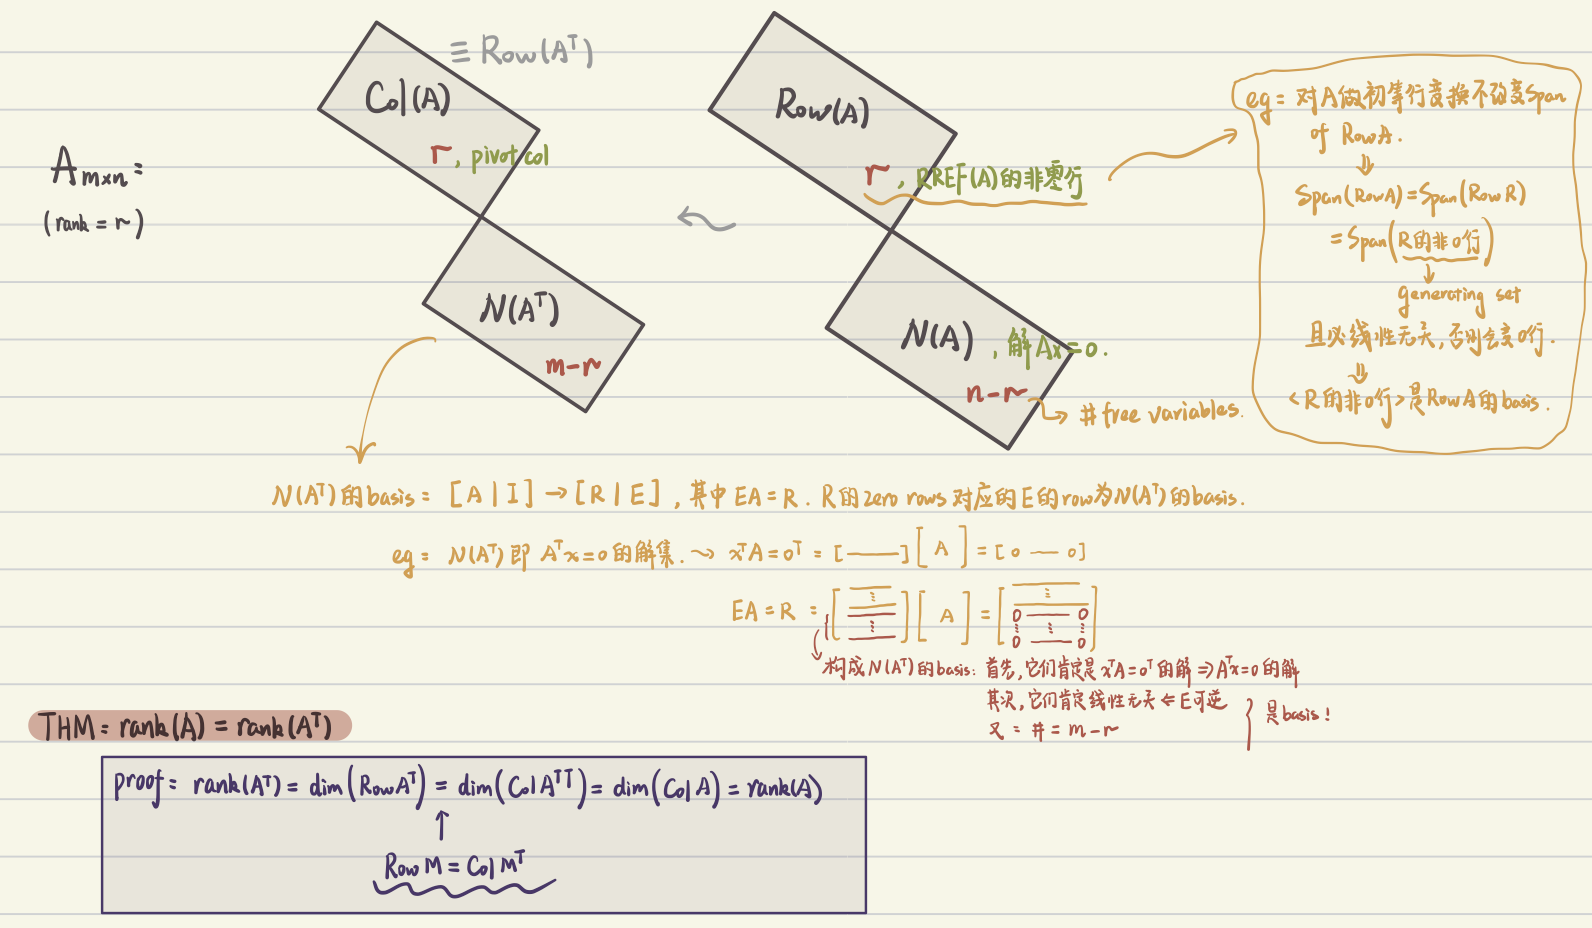 ≡ Row(Aᵀ)
Col(A)
r, pivot col
A m×n:
(rank = r)
N(Aᵀ)
m-r
Row(A)
r, RREF(A)的非零行
N(A), 解Ax=0.
n-r
# free variables.
eg: 对A做初等行变换不改变Span
of RowA.
⇓
Span(RowA)=Span(RowR)
=Span(R的非0行)
↓
generating set
且必线性无关,否则会变0行.
⇓
<R的非0行>是RowA的basis.
N(Aᵀ)的basis: [A | I] → [R | E], 其中EA=R. R的zero rows对应的E的row为N(Aᵀ)的basis.
eg: N(Aᵀ)即Aᵀx=0的解集. ⤳ xᵀA=0ᵀ: [——][A]=[0 — 0]
EA=R: [⋮ ⋮][A]=[⋮ 0 — 0 ⋮ ⋮ ⋮ 0 — 0]
构成N(Aᵀ)的basis: 首先,它们肯定是xᵀA=0ᵀ的解⇒Aᵀx=0的解
其次,它们肯定线性无关⇐E可逆
又: #=m-r
} 是basis!
THM: rank(A) = rank(Aᵀ)
proof: rank(Aᵀ) = dim(RowAᵀ) = dim(ColAᵀᵀ) = dim(ColA) = rank(A)
↑
Row M = Col Mᵀ